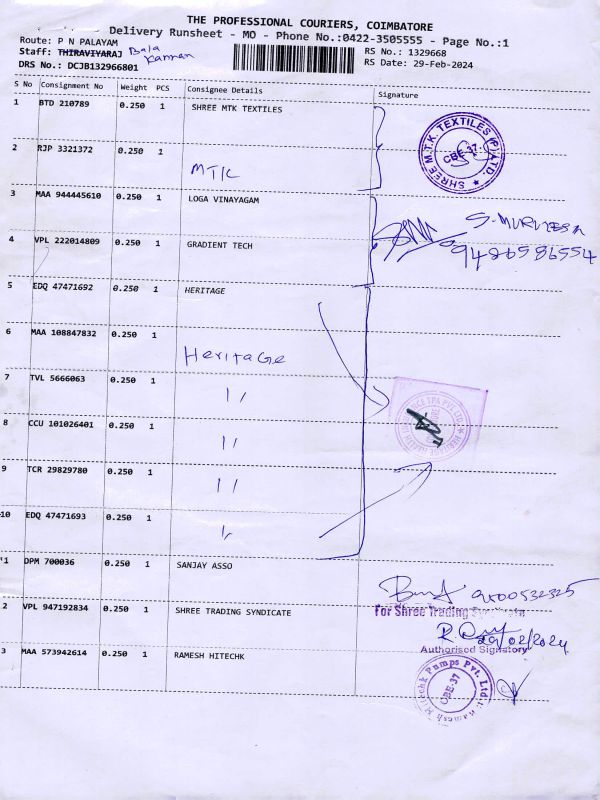 THE PROFESSIONAL COURIERS, COIMBATORE
Delivery Runsheet - MO - Phone No.:0422-3505555 - Page No.:1
Route: P N PALAYAM
RS No.: 1329668
Staff: THIRAVIYARAJ Bala Kannan
RS Date: 29-Feb-2024
DRS No.: DCJB132966801
S No Consignment No Weight PCS Consignee Details Signature
1 BTD 210789 0.250 1 SHREE MTK TEXTILES
SHREE M.T.K. TEXTILES (P) LTD. ★ CBE-37.
2 RJP 3321372 0.250 1 MTK
3 MAA 944445610 0.250 1 LOGA VINAYAGAM
S. MURUGESA
9486586554
4 VPL 222014809 0.250 1 GRADIENT TECH
5 EDQ 47471692 0.250 1 HERITAGE
6 MAA 108847832 0.250 1 Heritage
7 TVL 5666063 0.250 1 "
8 CCU 101026401 0.250 1 "
9 TCR 29829780 0.250 1 "
10 EDQ 47471693 0.250 1 "
1 DPM 700036 0.250 1 SANJAY ASSO
9500532325
2 VPL 947192834 0.250 1 SHREE TRADING SYNDICATE
For Shree Trading Syndicate
29/02/2024
Authorised Signatory
3 MAA 573942614 0.250 1 RAMESH HITECHK
Ramesh Hitechk Pumps Pvt. Ltd. CBE-37